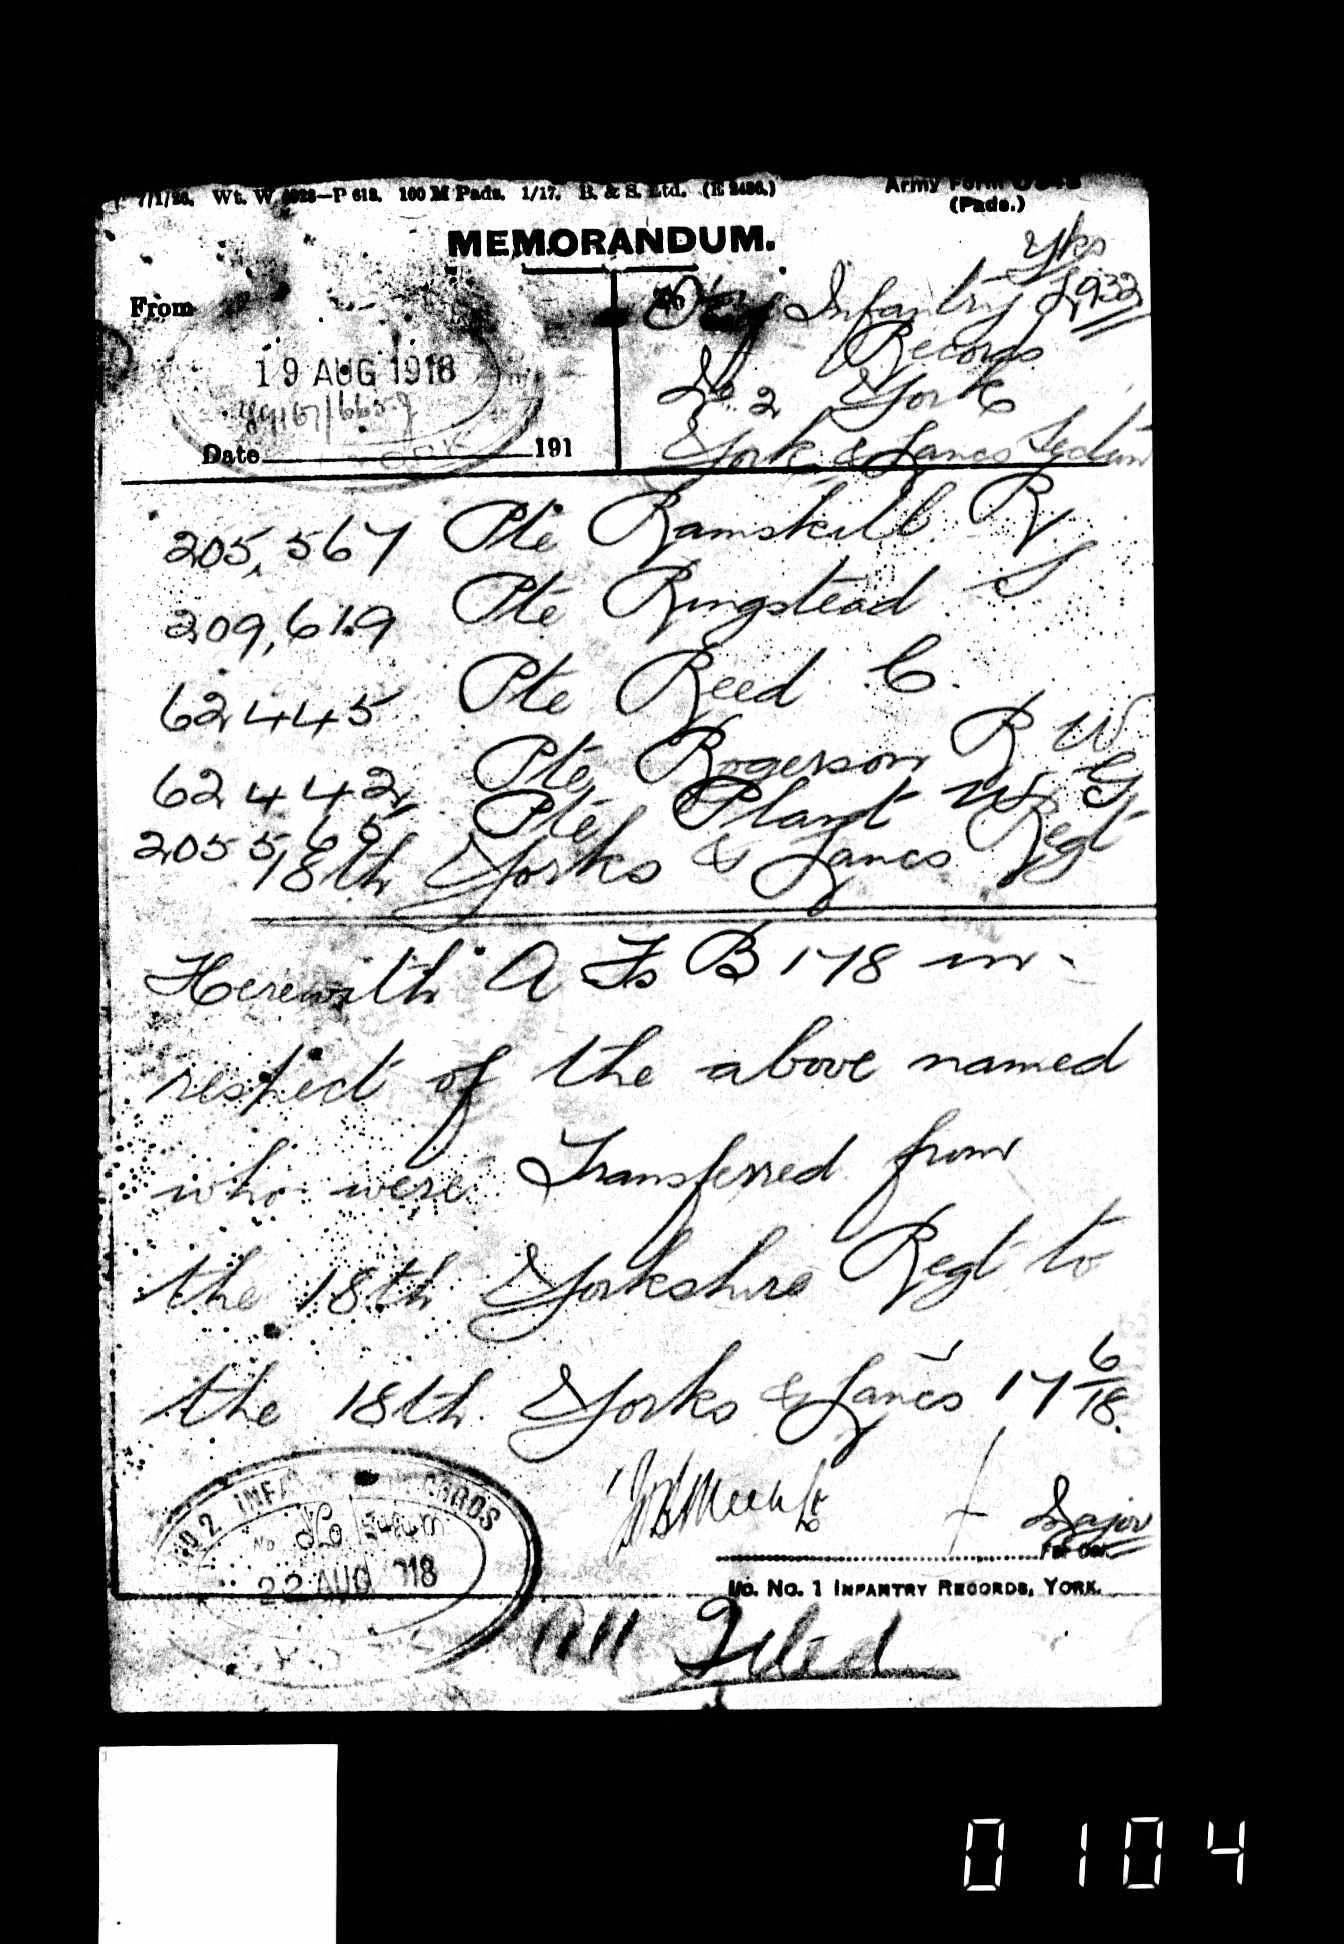 7/1/26. Wt. W 4928—P 612. 100 M Pads. 1/17. B. & S. Ltd. (E 2486.)
Army Form
(Pads.)
MEMORANDUM.
Yks
From
To
Infantry 2932
19 AUG 1918
Records
No. 2 York
Date 191
York & Lancs Section
205,567 Pte Ramskill R.
209,619 Pte Ringstead S
62445 Pte Reed C.
62442 Pte Rogerson R W
205565 Pte Plant W G
18th Yorks & Lancs Regt
Herewith A Fs B 178 in
respect of the above named
who were Transferred from
the 18th Yorkshire Regt to
the 18th Yorks & Lancs 17 6/18.
Major
For Col.
I/c. No. 1 INFANTRY RECORDS, YORK.
NO 2 INFA CORDS
No
22 AUG 918
All Filed
0104